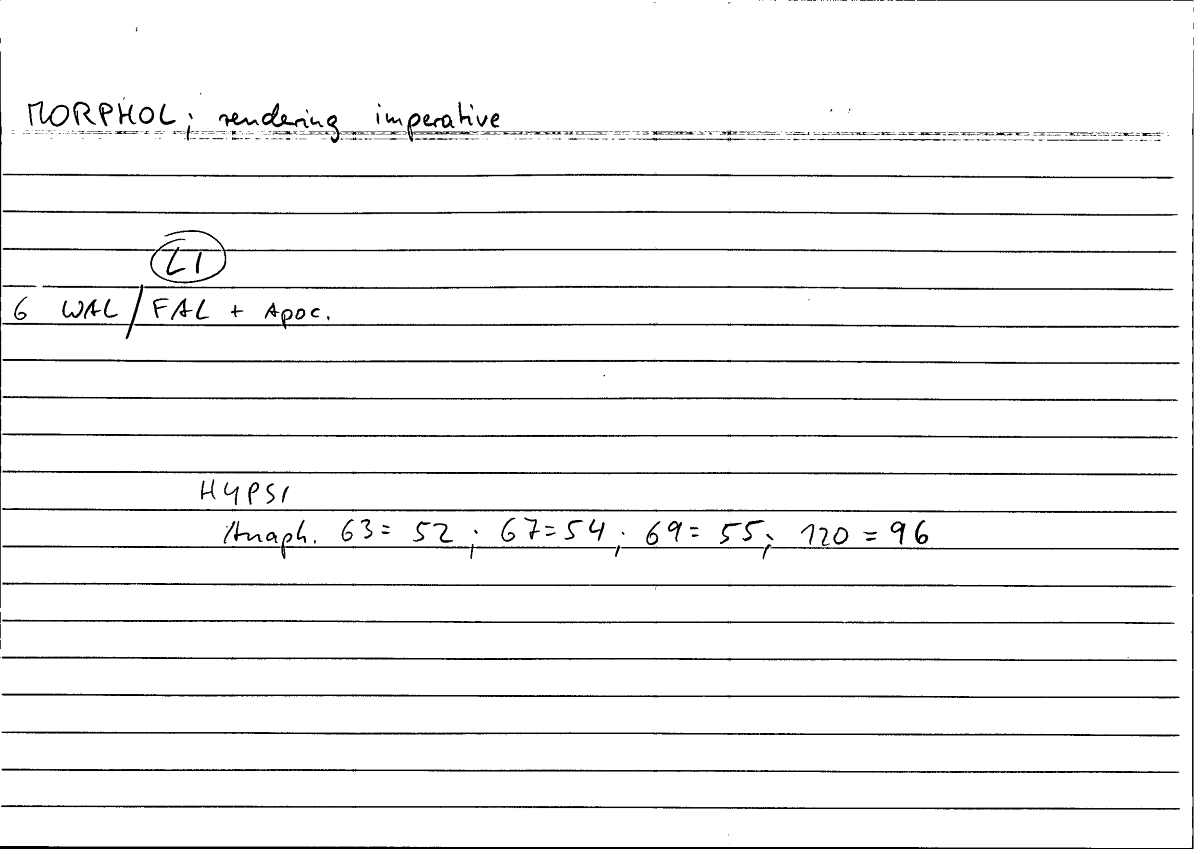 MORPHOL; rendering imperative
LI
6 WAL/FAL + Apoc.
HYPSI
Anaph. 63 = 52; 67 = 54; 69 = 55; 120 = 96